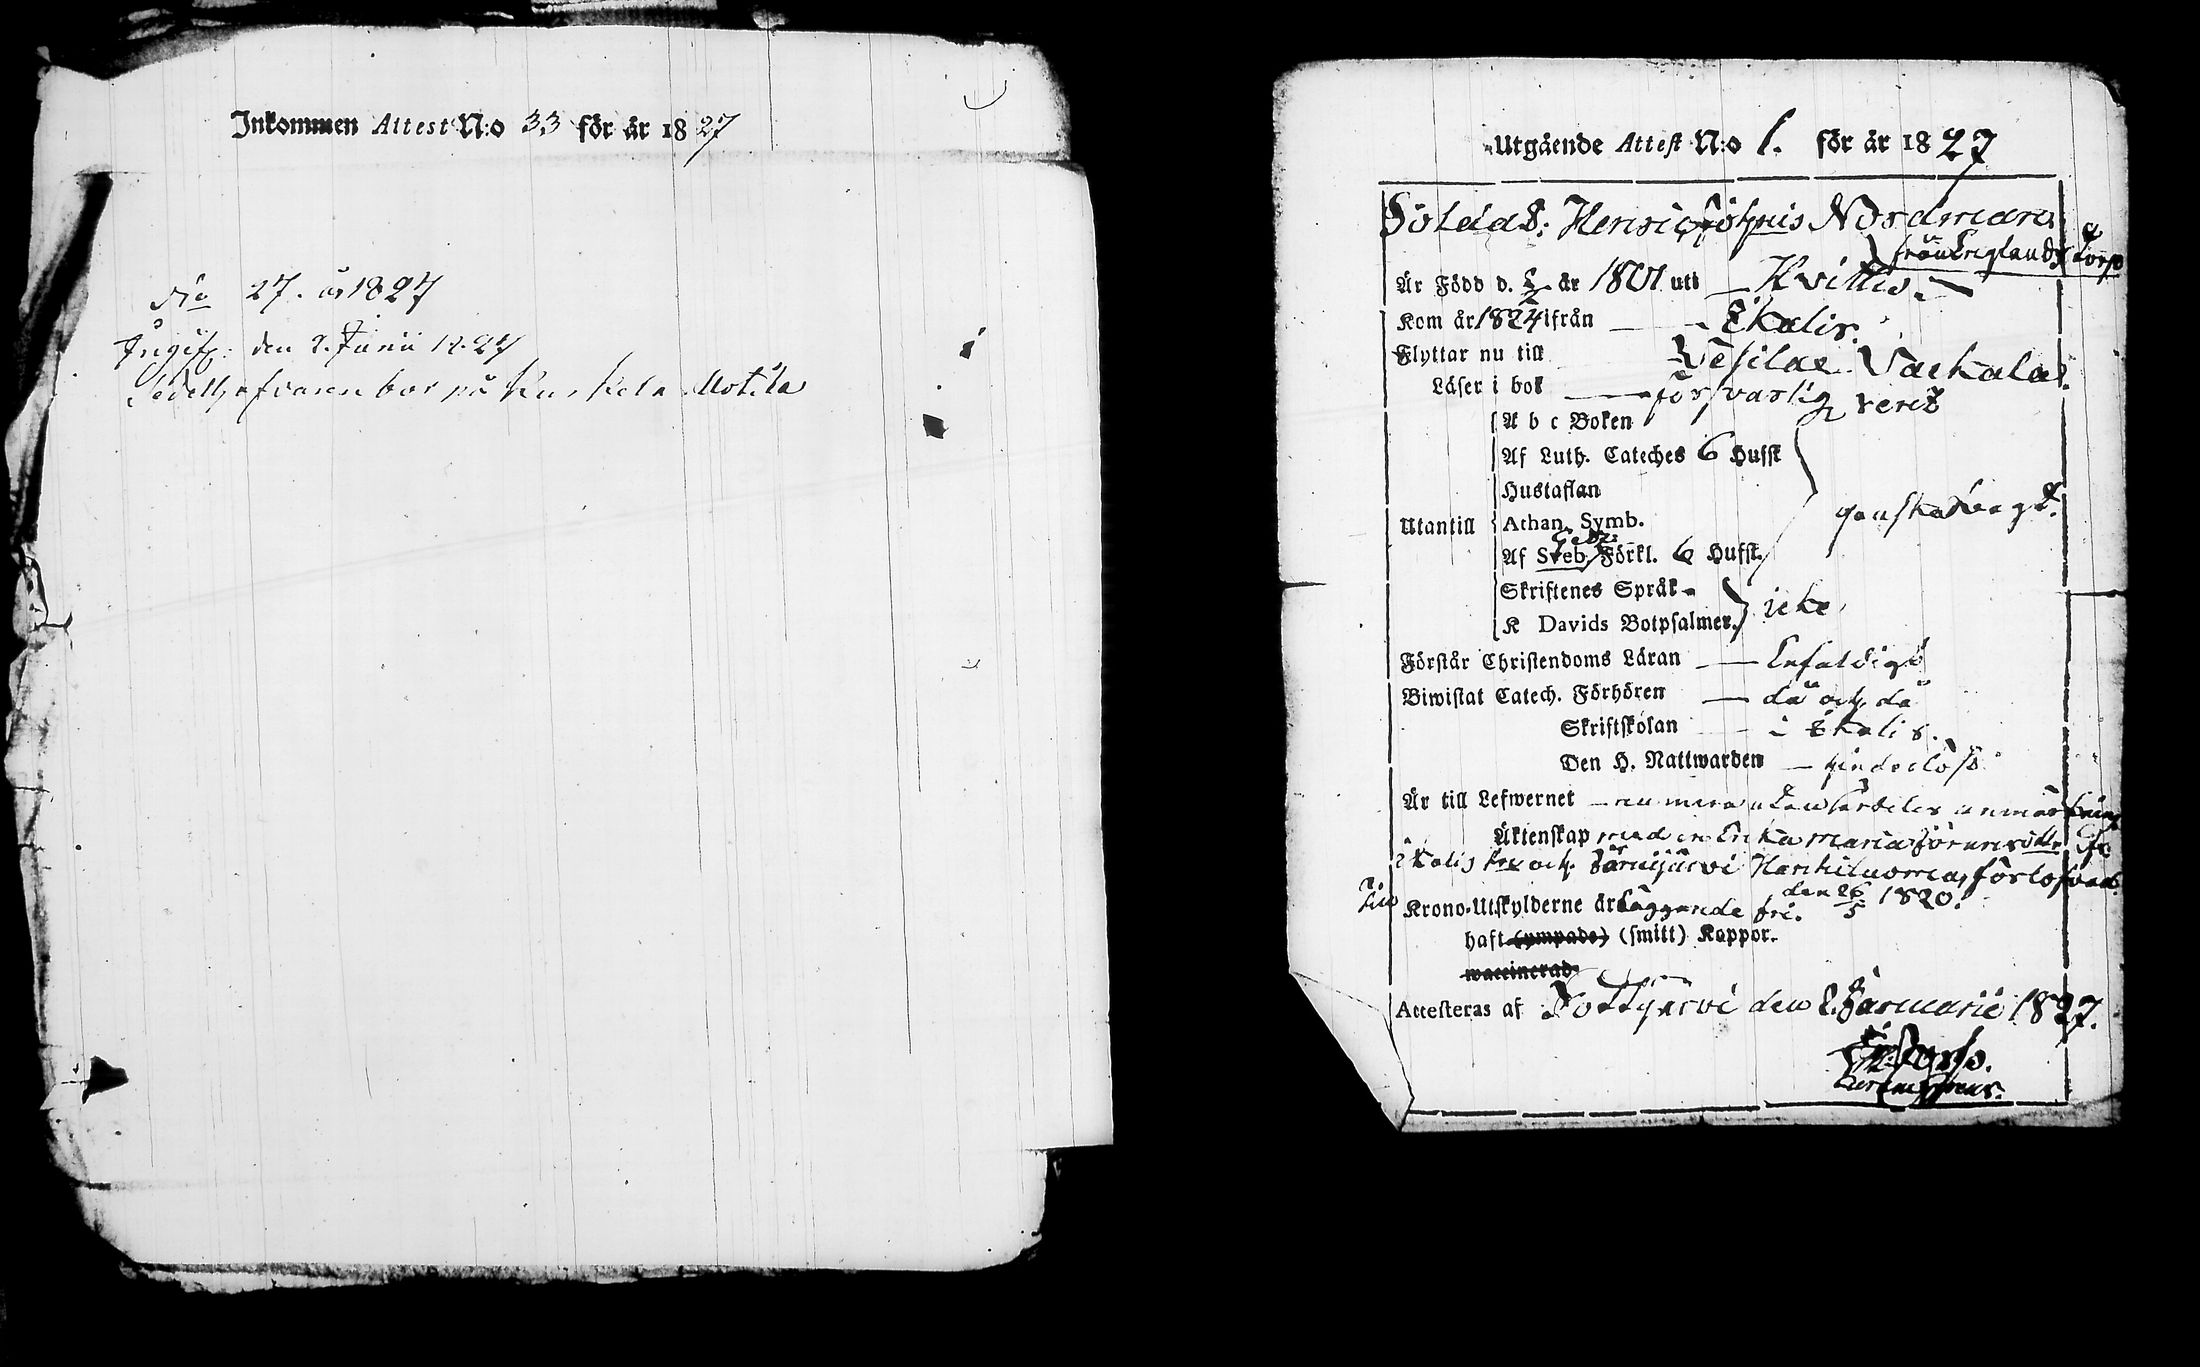 Inkommen Attest N:o 33 för år 1827
No 27. år 1827
Ingif. den 2. Junii 1827
Sedelhafvaren bor på Kuskela Motila
Utgående Attest N:o 1. för år 1827
Soldat: Henric Johnis Nordman
från Englands Torp
Är Född d. år 1801 uti Hvittis
Kom år 1824 ifrån Ikalis.
Flyttar nu till Vesilax
Läser i bok försvarlig
A b c Boken
Af Luth. Cateches 6 Hufst
Hustaflan
Utantill Athan. Symb.
Af Sveb. Förkl. 6 Hufst.
ganska
Skriftenes Språk
K Davids Botpsalmer. icke
Förstår Christendoms Läran Enfaldigt
Biwistat Catech. Förhören då och då
Skriftskolan i Ikalis.
Den H. Nattwarden hinderlöst
Är till Lefwernet nu mera utan särdeles anmärkning
Äktenskap med en Erika Maria
Ikalis och Järvijärvi förlofvad
den 26/5 1820.
Krono-Utskylderne är Läggande fri.
haft (ympade) (smitt) Koppor.
waccinerad
Attesteras af den 2. Januarii 1827.